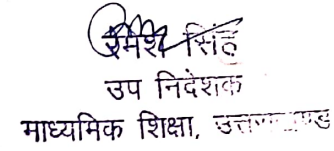 रमेश सिंह
उप निदेशक
माध्यमिक शिक्षा, उत्तराखण्ड